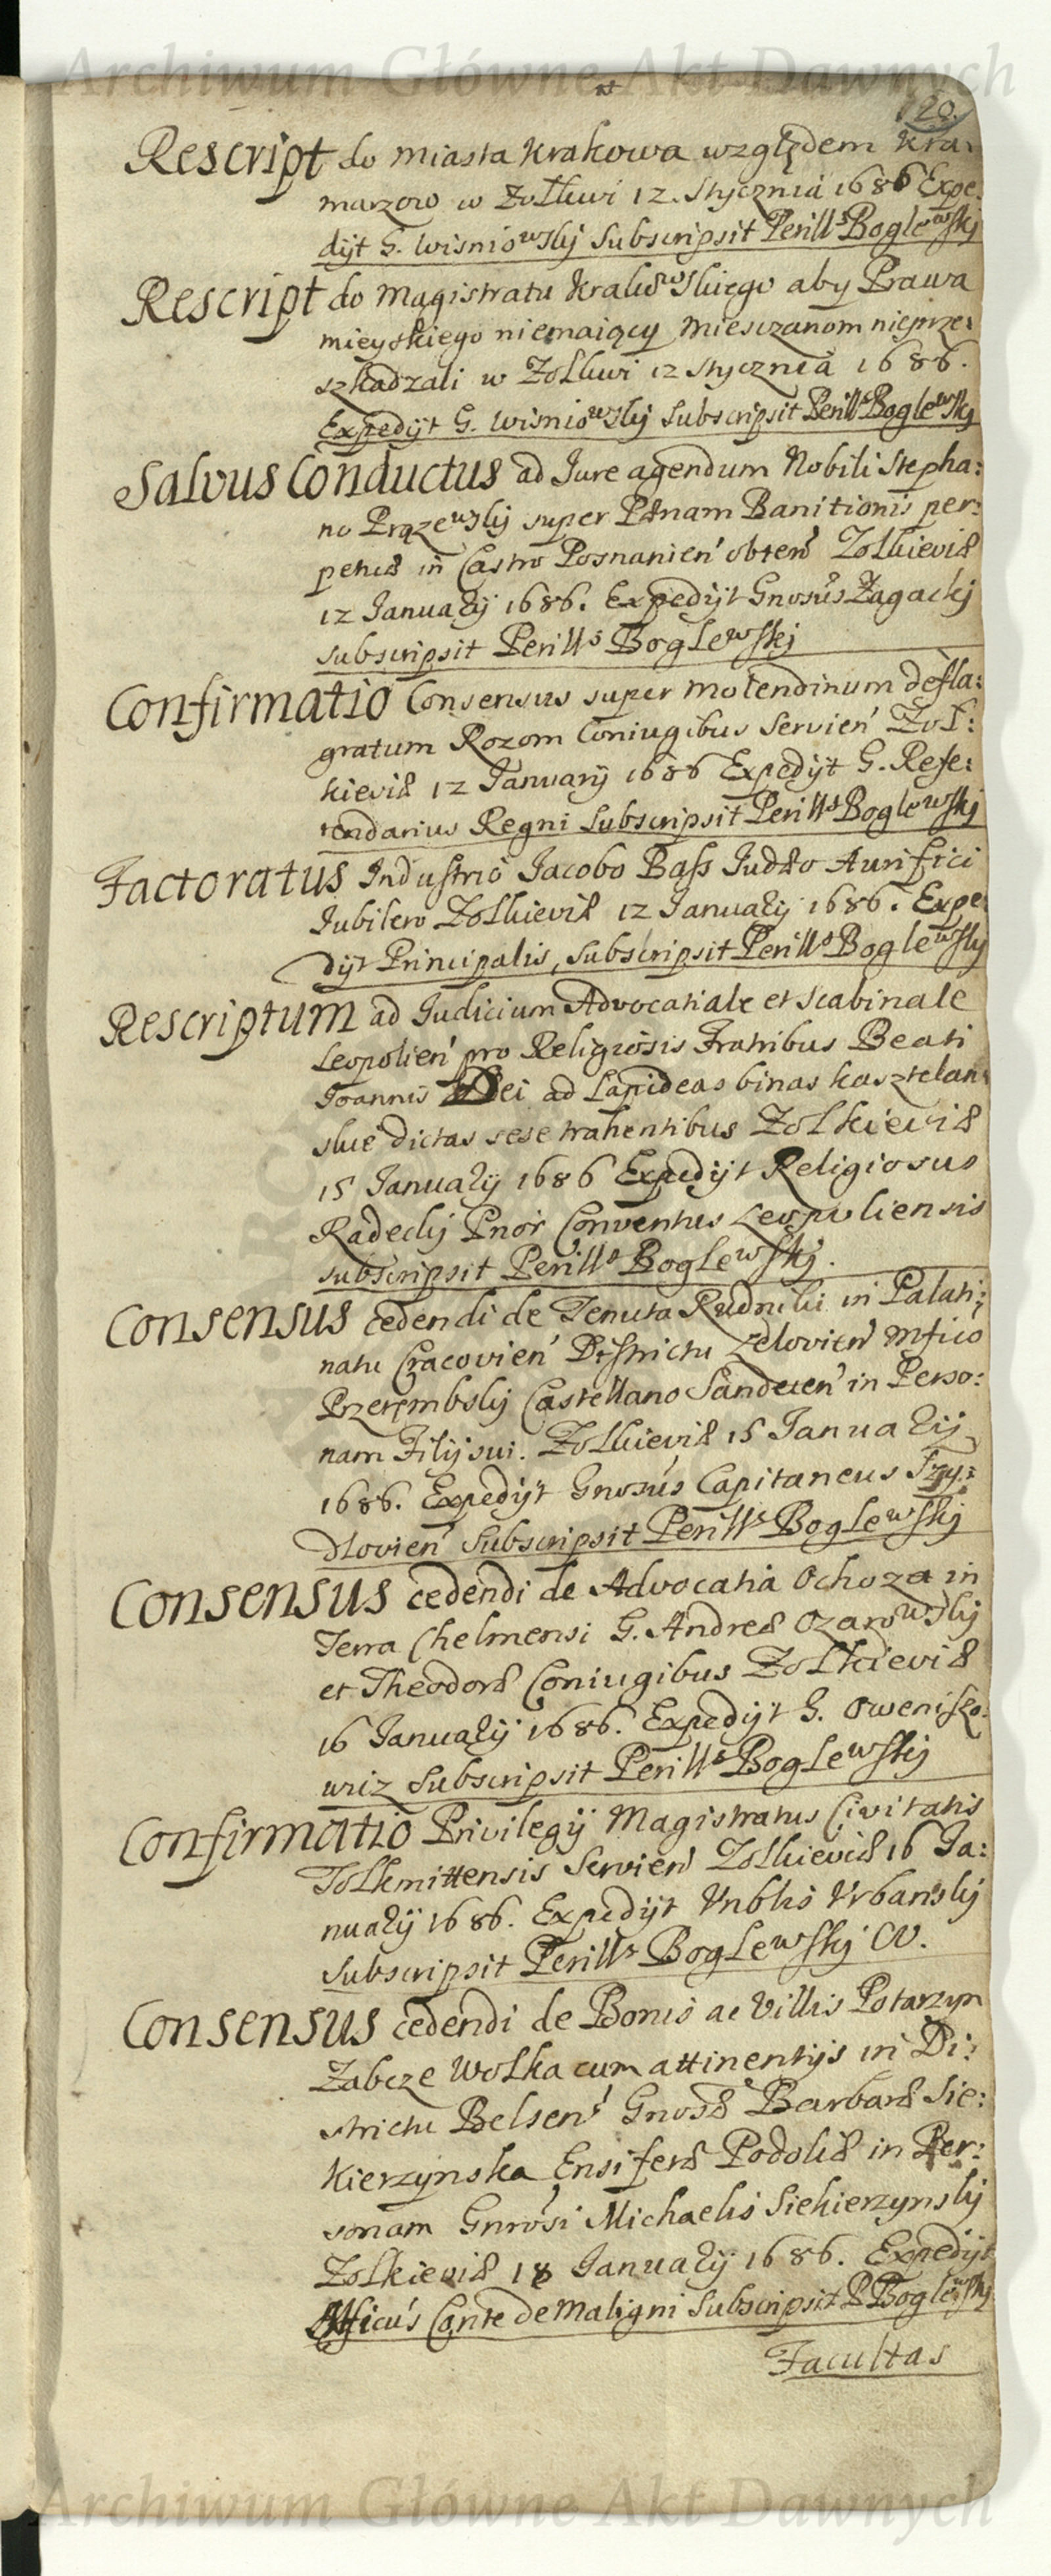 Archiwum Główne Akt Dawnych
120.
Rescript do miasta Krakowa względem Kra:
marzow w Zolkwi 12. Stycznia 1686 Expe:
dijt G. Wisniowskij Subscripsit Perills Boglewskij
Rescript do Magistratu Krakowskiego aby Prawa
mieyskiego niemaiący Miesczanom nieprze:
szkadzali w Zolkwi 12 Stycznia 1686.
Expedijt G. Wisniowskij Subscripsit Perills Boglewskij
Salvus Conductus ad Jure agendum Nobili Stepha:
no Prązewskij super Paenam Banitionis per:
petuae in Castro Posnanien obten Zolkieviae
12 Januarij 1686. Expedijt Gnosus Zagackij
subscripsit Perills Boglewskij
Confirmatio Consensus super Molendinum defla:
gratum Rozom Coniugibus Servien Zol:
kieviae 12 January 1686 Expedijt G. Refe:
rendarius Regni Subscripsit Perills Boglewskij
Factoratus Industrio Jacobo Bass Judaeo Aurifici
Jubilero Zolkieviae 12 Januarij 1686. Expe
dijt Principalis, Subscripsit Perills Boglewskij
Rescriptum ad Judicium Advocatiale et Scabinale
Leopolien pro Religiosis Fratribus Beati
Joannis Dei ad Lapideas binas kasztelan:
skie dictas sese trahentibus Zolkieviae
15 Januarij 1686 Expedijt Religiosus
Radeckij Prior Conventus Leopoliensis
subscripsit Perills Boglewskij.
Consensus cedendi de Tenuta Rudniki in Palati:
natu Cracovien Districtu Lelovien Mfico
Przerembskij Castellano Sandecen in Perso:
nam Filij sui. Zolkieviae 15 Januarij
1686. Expedijt Gnosus Capitaneus Szy:
dlovien Subscripsit Perills Boglewskij
Consensus cedendi de Advocatia Ochoza in
Terra Chelmensi G. Andreae Ozarowskij
et Theodorae Coniugibus Zolkieviae
16 Januarij 1686. Expedijt G. Owenisko:
wriz Subscripsit Perills Boglewskij
Confirmatio Privilegij Magistratus Civitatis
Tolkmittensis Servien Zolkieviae 16 Ja:
nuarij 1686. Expedijt Vnblis Vrbanskij
Subscripsit Perills Boglewskij CV.
Consensus cedendi de Bonis ac Villis Potarzyn
Zabcze Wolka cum attinentijs in Di:
strictu Belsen Gnosae Barbarae Sie:
kierzynska Ensiferae Podoliae in Per:
sonam Gnrosi Michaelis Siekierzynskij
Zolkieviae 18 Januarij 1686. Expedijt
Mficus Conte de Maligni Subscripsit P Boglewskij
Facultas
Archiwum Główne Akt Dawnych